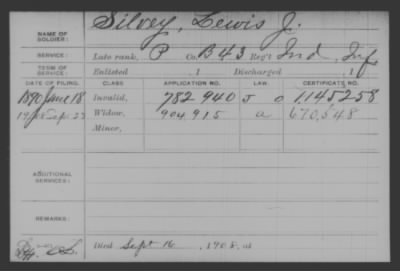 NAME OF SOLDIER: Silvey, Lewis J.
SERVICE: Late rank, P Co. B 43 Reg't Ind. Inf
TERM OF SERVICE: Enlisted , 1 Discharged , 1
DATE OF FILING. CLASS APPLICATION NO. LAW. CERTIFICATE NO.
1890 June 18 Invalid, 782 940 J O 1145258
1908 Sep. 23 Widow, 904,915 a 670,548
Minor,
ADDITIONAL SERVICES:
REMARKS:
Died Sept 16, 1908, at